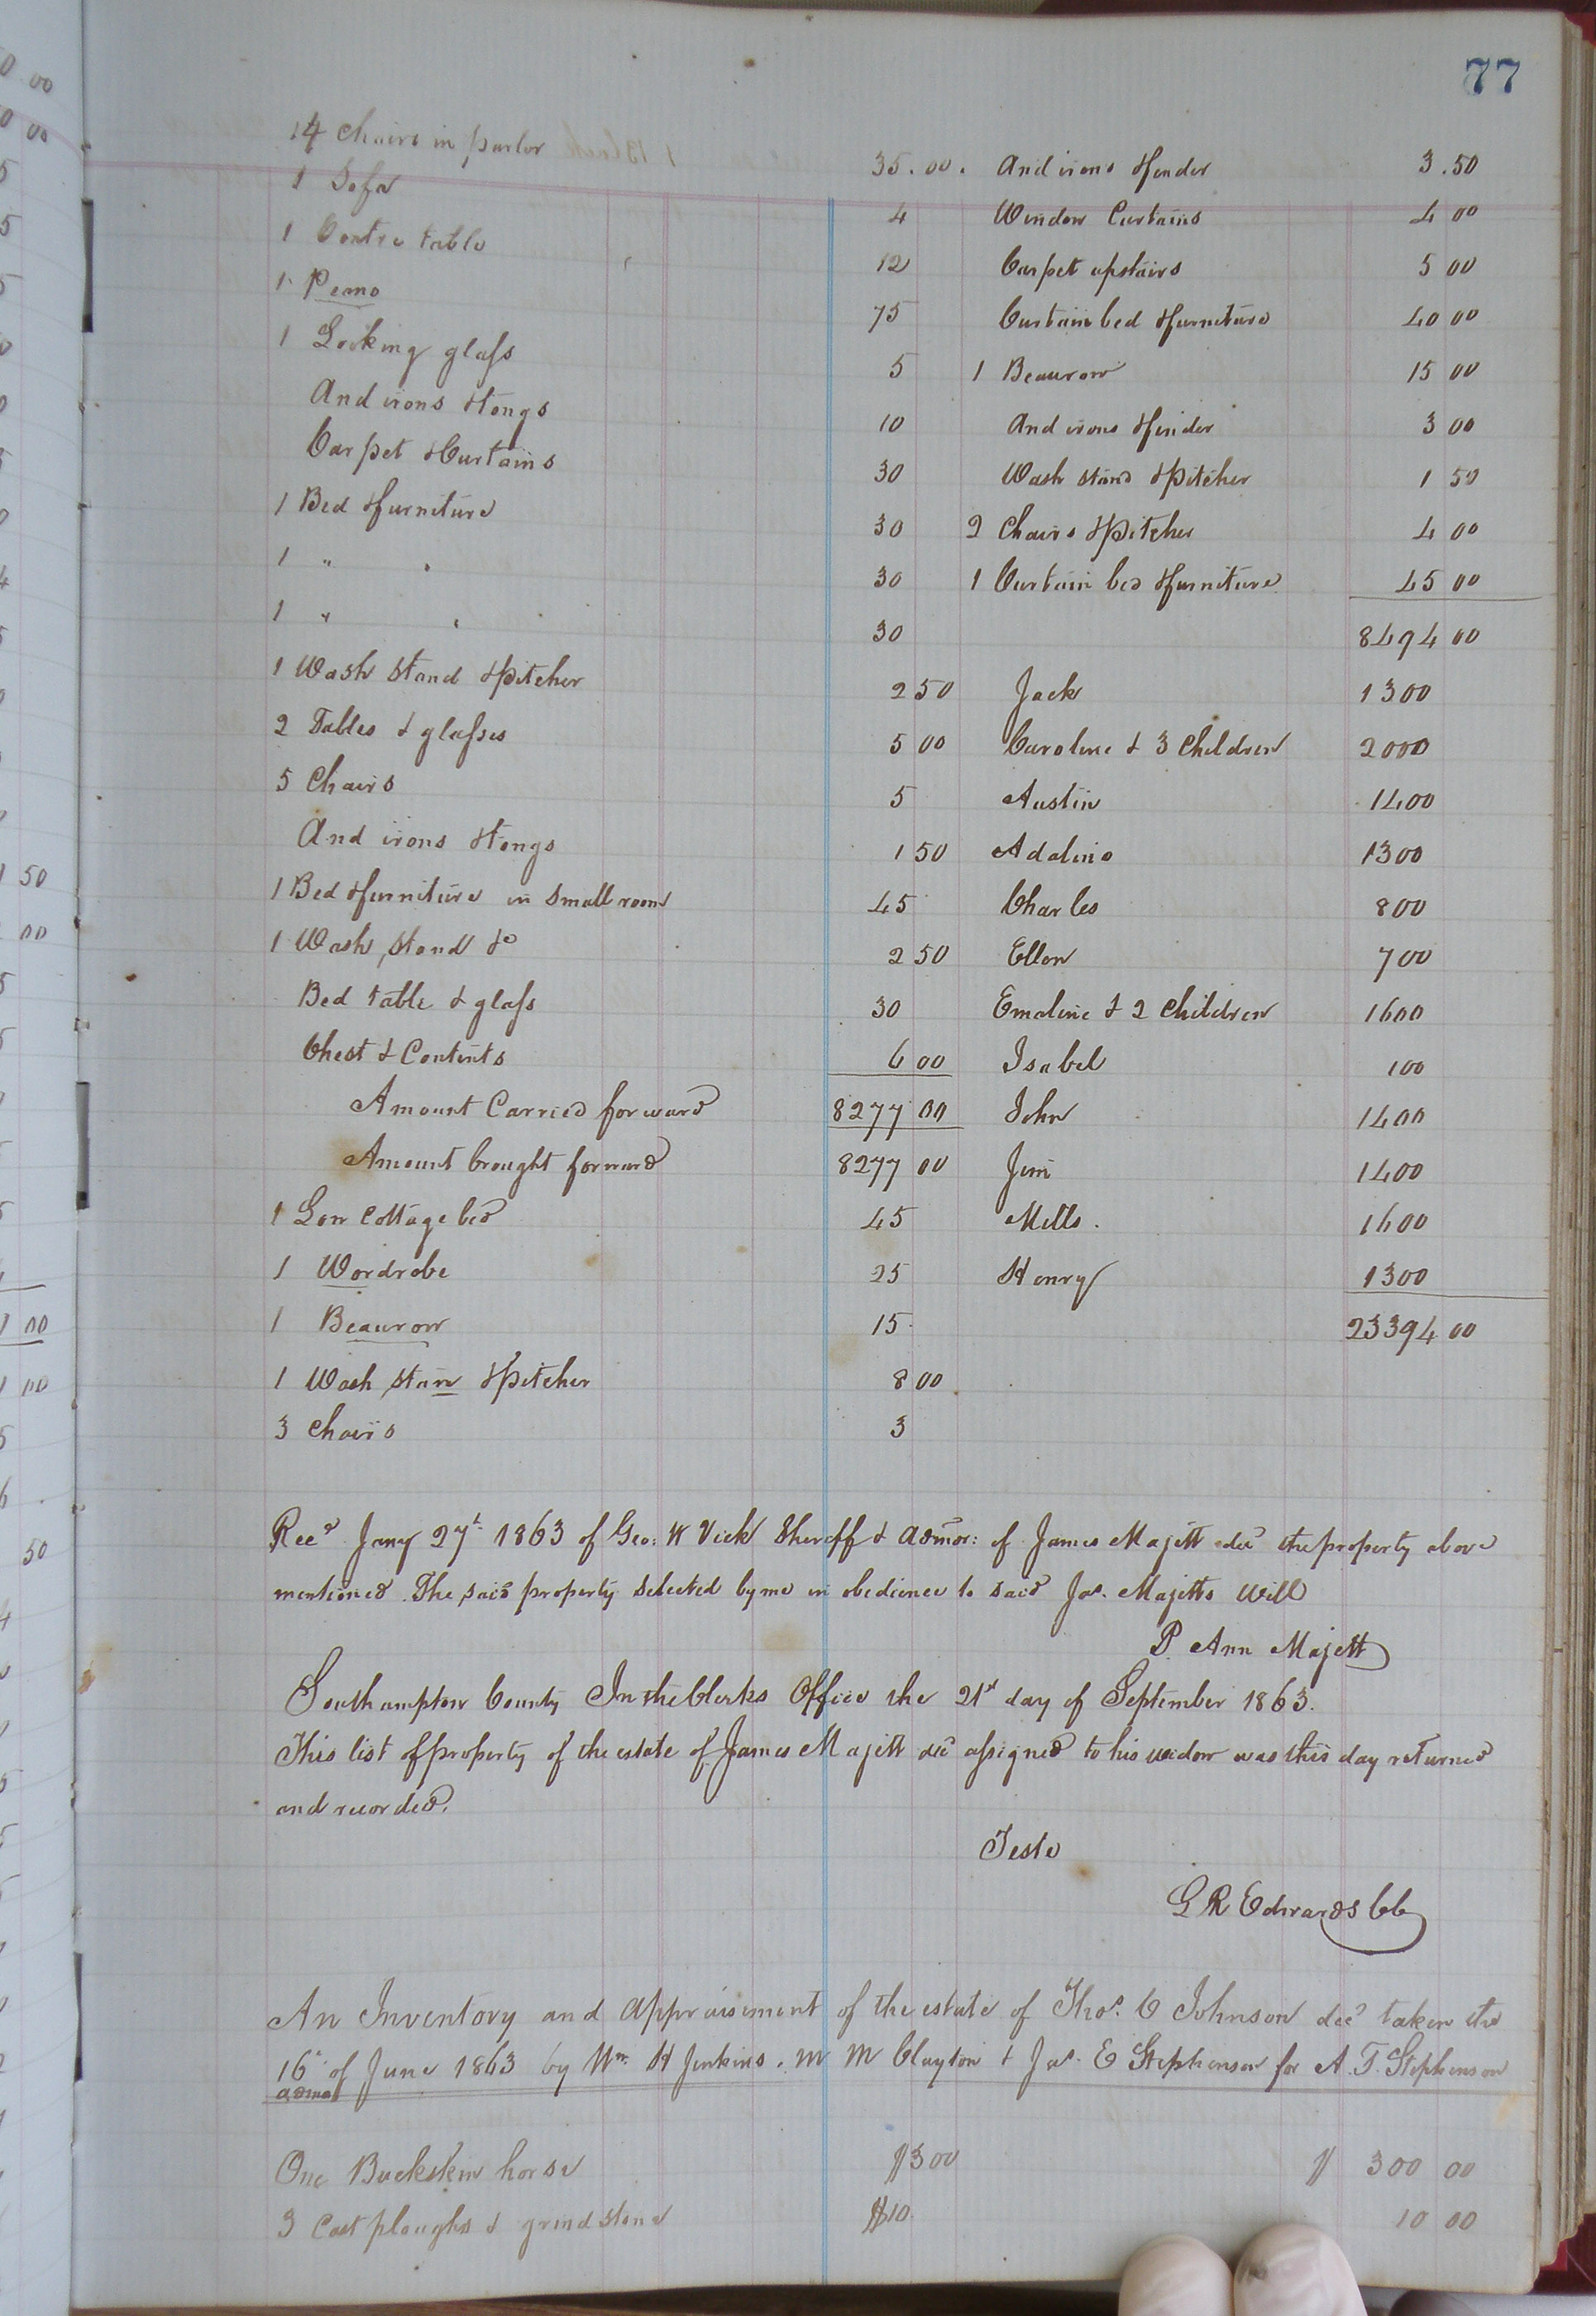 77
14 Chairs in parlor 35.00.
1 Sofa 4
1 Centre table 12
1 Peano 75
1 Looking glass 5
And irons & tongs 10
Carpet & Curtains 30
1 Bed & furniture 30
1 " " 30
1 " " 30
1 Wash Stand & Pitcher 2 50
2 Tables & glasses 5 00
5 Chairs 5
And irons & tongs 1 50
1 Bed & furniture in Small room 45
1 Wash Stand &c 2 50
Bed table & glass 30
Chest & Contents 6 00
Amount Carried forward 8277 00
Amount brought forward 8277 00
1 Low Cottage bed 45
1 Wordrobe 25
1 Beaurow 15
1 Wash Stan & Pitcher 8 00
3 Chairs 3
And irons & fender 3.50
Window Curtains 4 00
Carpet upstairs 5 00
Curtain bed & furniture 40 00
1 Beaurow 15 00
And irons & finder 3 00
Wash stand & Pitcher 1 50
2 Chairs & Pitcher 4 00
1 Curtain bed & furniture 45 00
8494 00
Jack 1300
Caroline & 3 Children 2000
Austin 1400
Adaline 1300
Charles 800
Ellen 700
Emaline & 2 Children 1600
Isabel 100
John 1400
Jim 1400
Mills. 1600
Henry 1300
23394 00
Recd Jany 27t 1863 of Geo: W Vick Sheriff & admor: of James Majett decd the property above
mentioned. The said property selected by me in obedience to said Jas. Majetts Will
P. Ann Majett
Southampton County In the Clerks Office the 21st day of September 1863.
This list of property of the estate of James Majett decd assigned to his widow was this day returned
and recorded.
Teste
L R Edwards CC
An Inventory and Appraisement of the estate of Thos. C Johnson decd taken the
16th of June 1863 by Wm. H Jenkins. M M Clayton & Jas. E Stephenson for A. T. Stephenson
admor
One Buckskin horse $300 $ 300 00
3 Cast ploughs & grindstone $10. 10 00